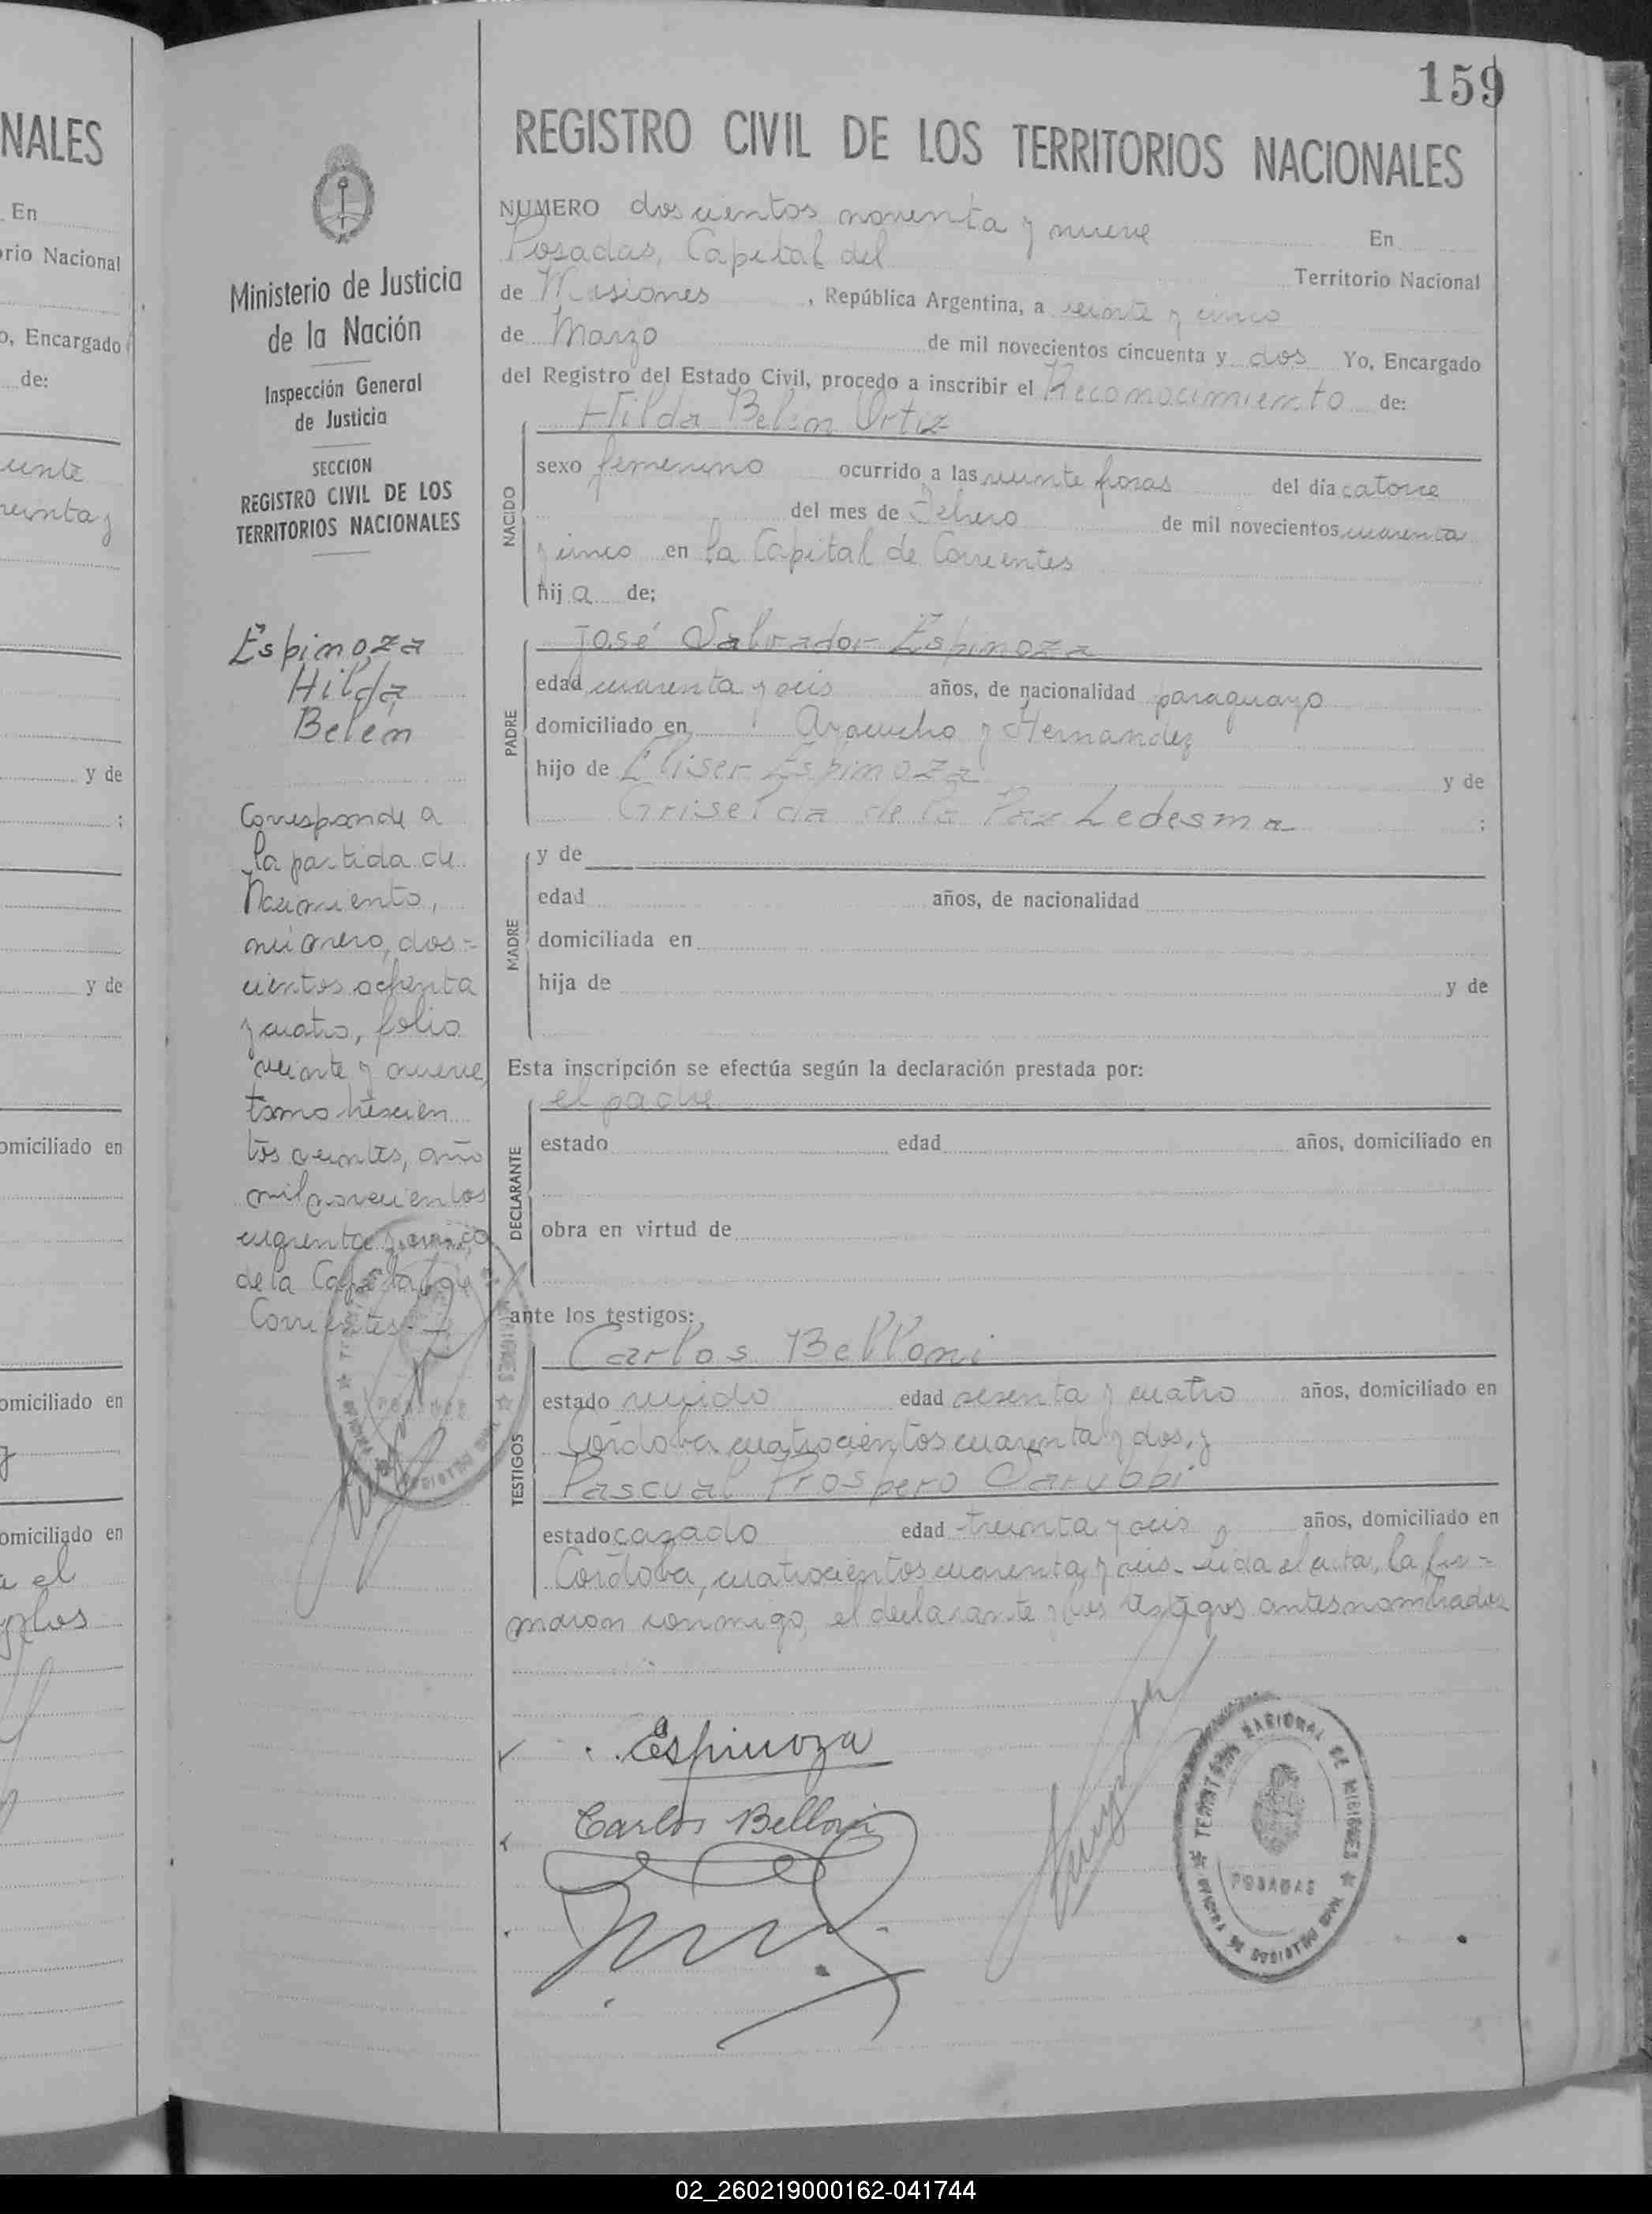 159
REGISTRO CIVIL DE LOS TERRITORIOS NACIONALES
NUMERO doscientos noventa y nueve En
Posadas, Capital del Territorio Nacional
de Misiones, República Argentina, a veinte y cinco
de Marzo de mil novecientos cincuenta y dos Yo, Encargado
del Registro del Estado Civil, procedo a inscribir el Reconocimiento de:
Hilda Belén Ortiz
NACIDO
sexo femenino ocurrido a las veinte horas del día catorce
y del mes de Febrero de mil novecientos cuarenta
y cinco en la Capital de Corrientes
hij a de;
José Salvador Espinoza
PADRE
edad cuarenta y seis años, de nacionalidad paraguayo
domiciliado en Ayacucho y Hernandez
hijo de Eliser Espinoza y de
Griselda de la Paz Ledesma ;
MADRE
y de
edad años, de nacionalidad
domiciliada en
hija de y de
Esta inscripción se efectúa según la declaración prestada por:
el padre
DECLARANTE
estado edad años, domiciliado en
obra en virtud de
ante los testigos:
Carlos Belloni
TESTIGOS
estado viudo edad sesenta y cuatro años, domiciliado en
Córdoba cuatrocientos cuarenta y dos, y
Pascual Prospero Carubbi
estado casado edad treinta y seis, años, domiciliado en
Córdoba, cuatrocientos cuarenta y seis. Leida el acta, la fir=
maron conmigo, el declarante y los testigos antes nombrados
Espinoza
Carlos Belloni
TERRITORIO NACIONAL DE MISIONES
POSADAS
OFICINA DE REGISTRO CIVIL
Ministerio de Justicia
de la Nación
Inspección General
de Justicia
SECCION
REGISTRO CIVIL DE LOS
TERRITORIOS NACIONALES
Espinoza
Hilda
Belén
Corresponde a
la partida de
Nacimiento,
número, dos=
cientos ochenta
y cuatro, folio
veinte y nueve,
tomo trescien
tos veintes, año
mil novecientos
cuarenta y cinco
de la Capital de
Corrientes.-
NALES
En
orio Nacional
o, Encargado
de:
y de
;
y de
omiciliado en
omiciliado en
y
omiciliado en
a el
y los
02_260219000162-041744